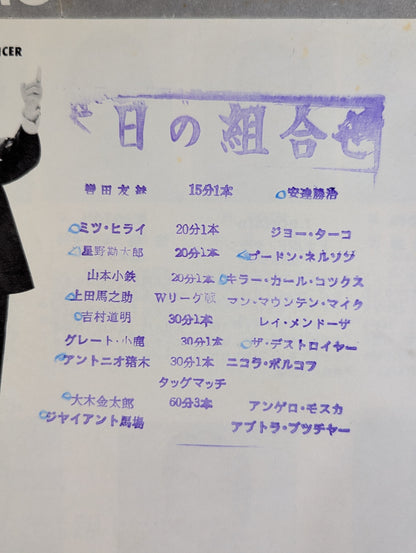 NCER
日の組合せ
誉田友鉄 15分1本 安達勝治
ミツ・ヒライ 20分1本 ジョー・ターコ
星野勘太郎 20分1本 ゴードン・ネルソン
山本小鉄 20分1本 キラー・カール・コックス
上田馬之助 Wリーグ戦 マン・マウンテン・マイク
吉村道明 30分1本 レイ・メンドーザ
グレート・小鹿 30分1本 ザ・デストロイヤー
アントニオ猪木 30分1本 ニコラ・ボルコフ
タッグマッチ
大木金太郎 60分3本 アンゲロ・モスカ
ジャイアント馬場 アブトラ・ブッチャー